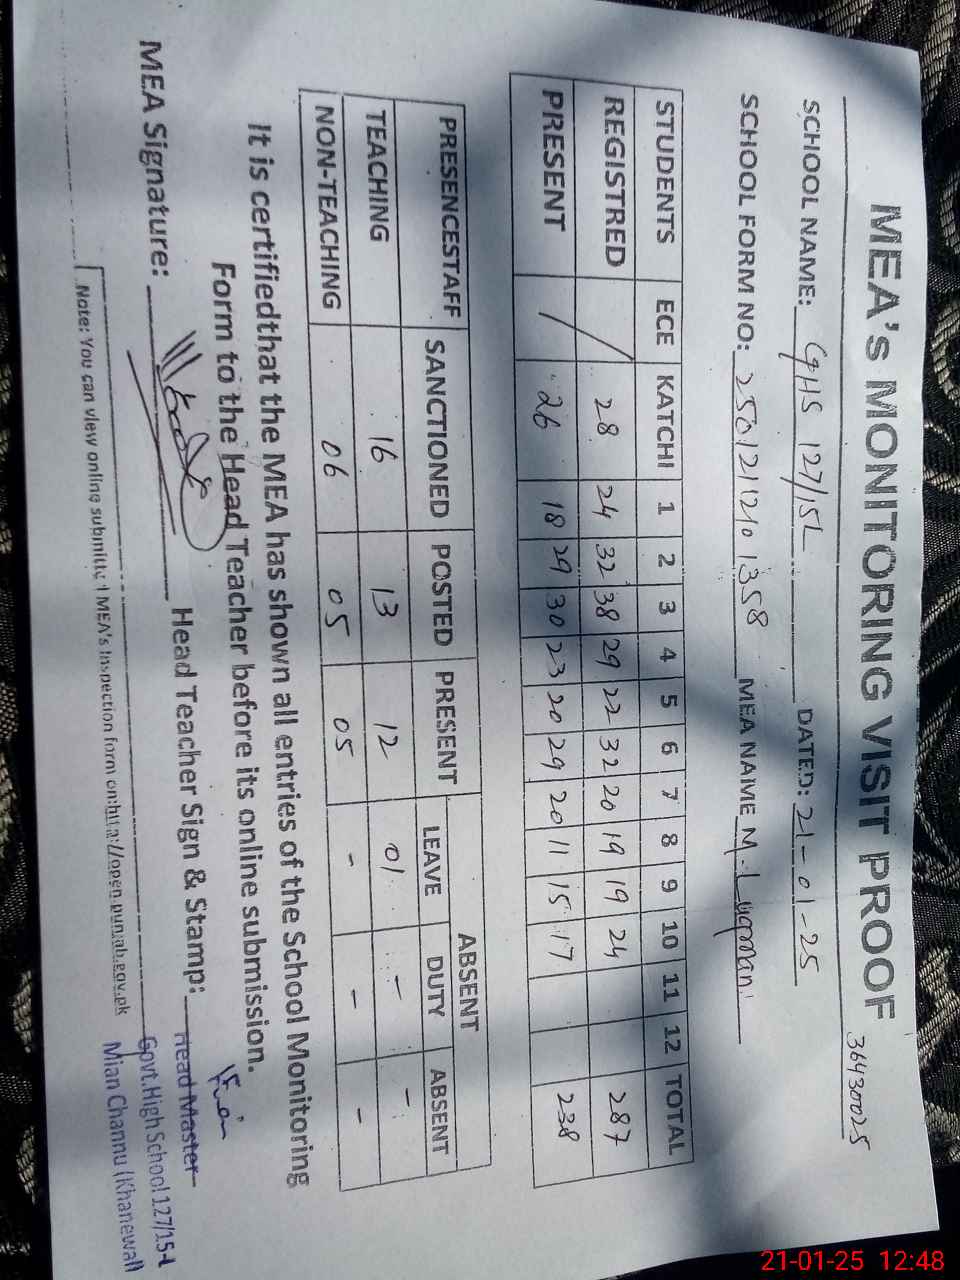 MEA's MONITORING VISIT PROOF
36430025
SCHOOL NAME: GHS 127/15L DATED: 21-01-25
SCHOOL FORM NO: 2501212101358 MEA NAME M. Luqman
STUDENTS ECE KATCHI 1 2 3 4 5 6 7 8 9 10 11 12 TOTAL
REGISTRED / 28 24 32 38 29 22 32 20 19 19 24 287
PRESENT / 26 18 29 30 23 20 29 20 11 15 17 238
PRESENCESTAFF SANCTIONED POSTED PRESENT ABSENT
LEAVE DUTY ABSENT
TEACHING 16 13 12 01 - -
NON-TEACHING 06 05 05 - - -
It is certifiedthat the MEA has shown all entries of the School Monitoring
Form to the Head Teacher before its online submission.
MEA Signature: Head Teacher Sign & Stamp:
Head Master
Govt.High School 127/15-L
Mian Channu (Khanewal)
Note: You can view online submitted MEA's Inspection form on:http://open.punjab.gov.pk
21-01-25 12:48